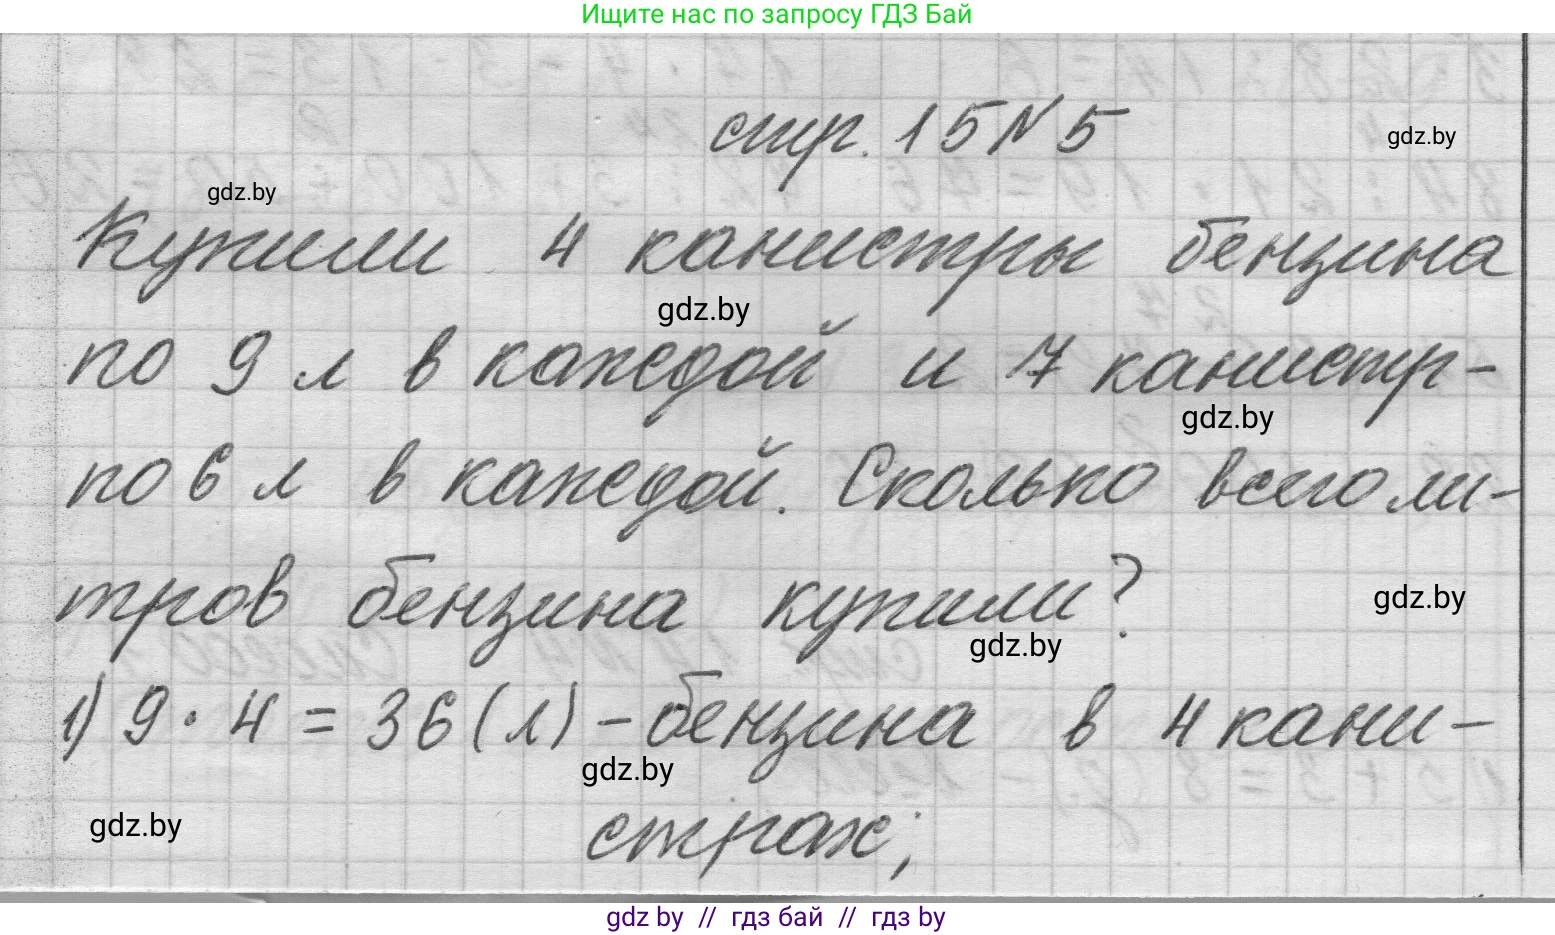 Ищите нас по запросу ГДЗ Бай
стр. 15 N 5
gdz.by
gdz.by
Купили 4 канистры бензина
gdz.by
по 9 л в каждой и 7 канистр-
gdz.by
по 6 л в каждой. Сколько всего ли-
тров бензина купили?
gdz.by
gdz.by
1) 9 · 4 = 36 (л) - бензина в 4 кани-
gdz.by
gdz.by
страх;
gdz by // гдз бай // гдз by